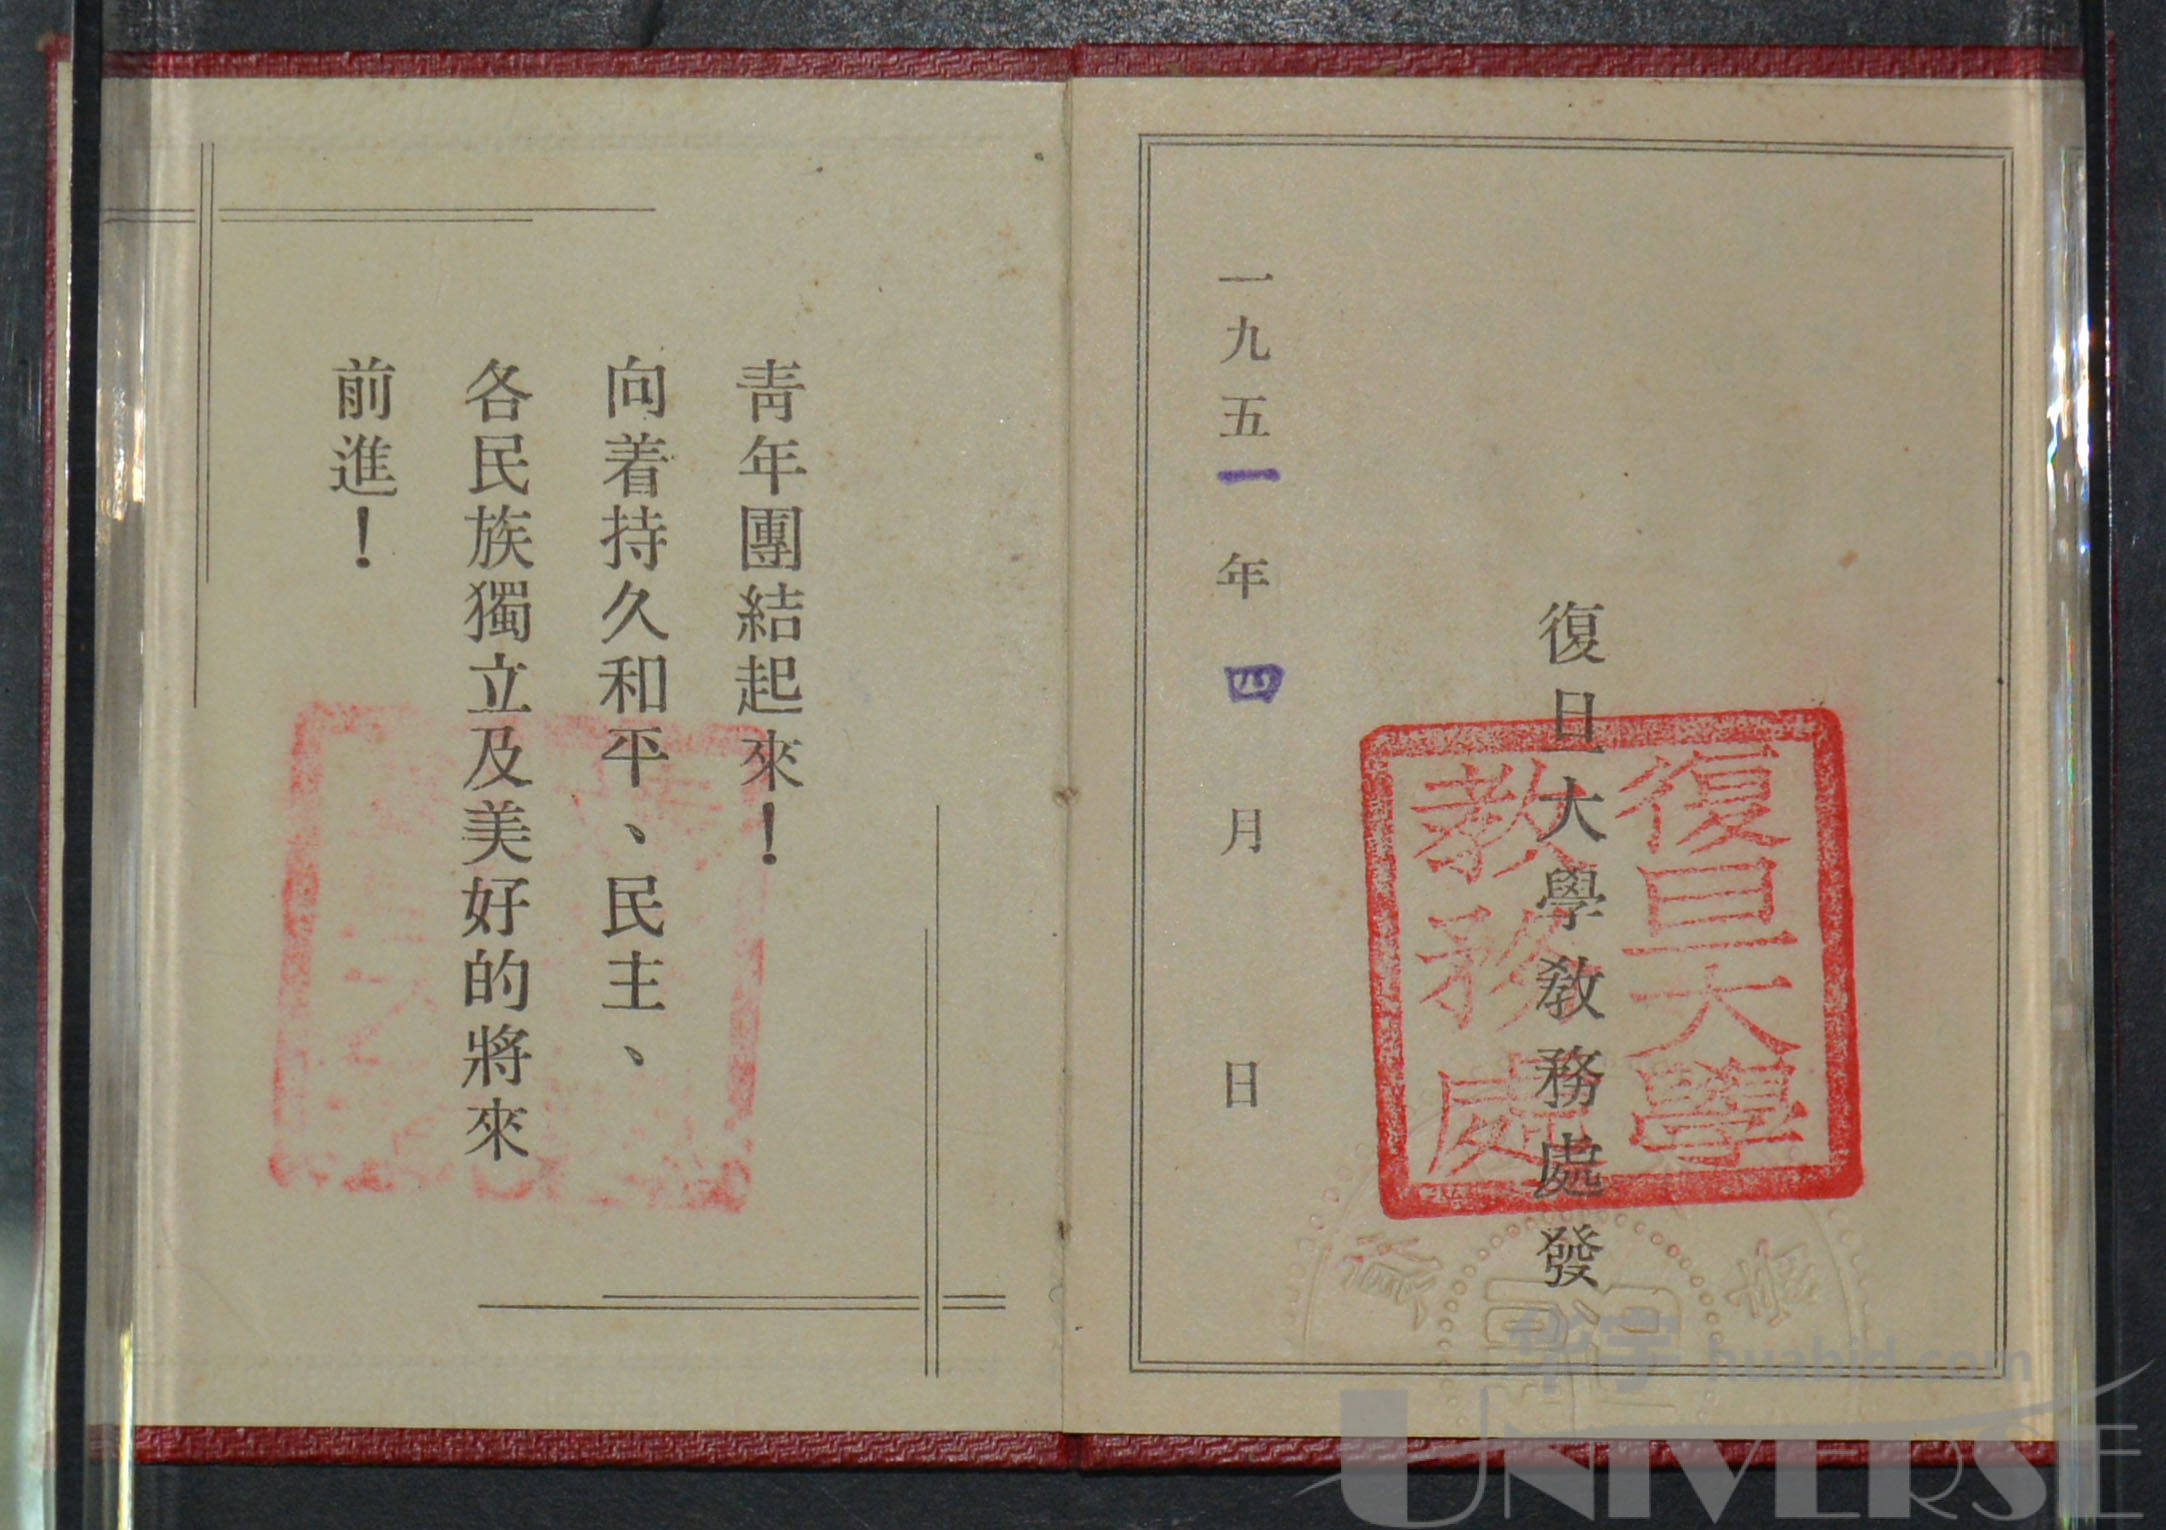 復旦大學教務處發
復旦大學
教務處
一九五一年四月日
青年團結起來！
向着持久和平、民主、
各民族獨立及美好的將來
前進！
华宇 huabid.com
UNIVERSE